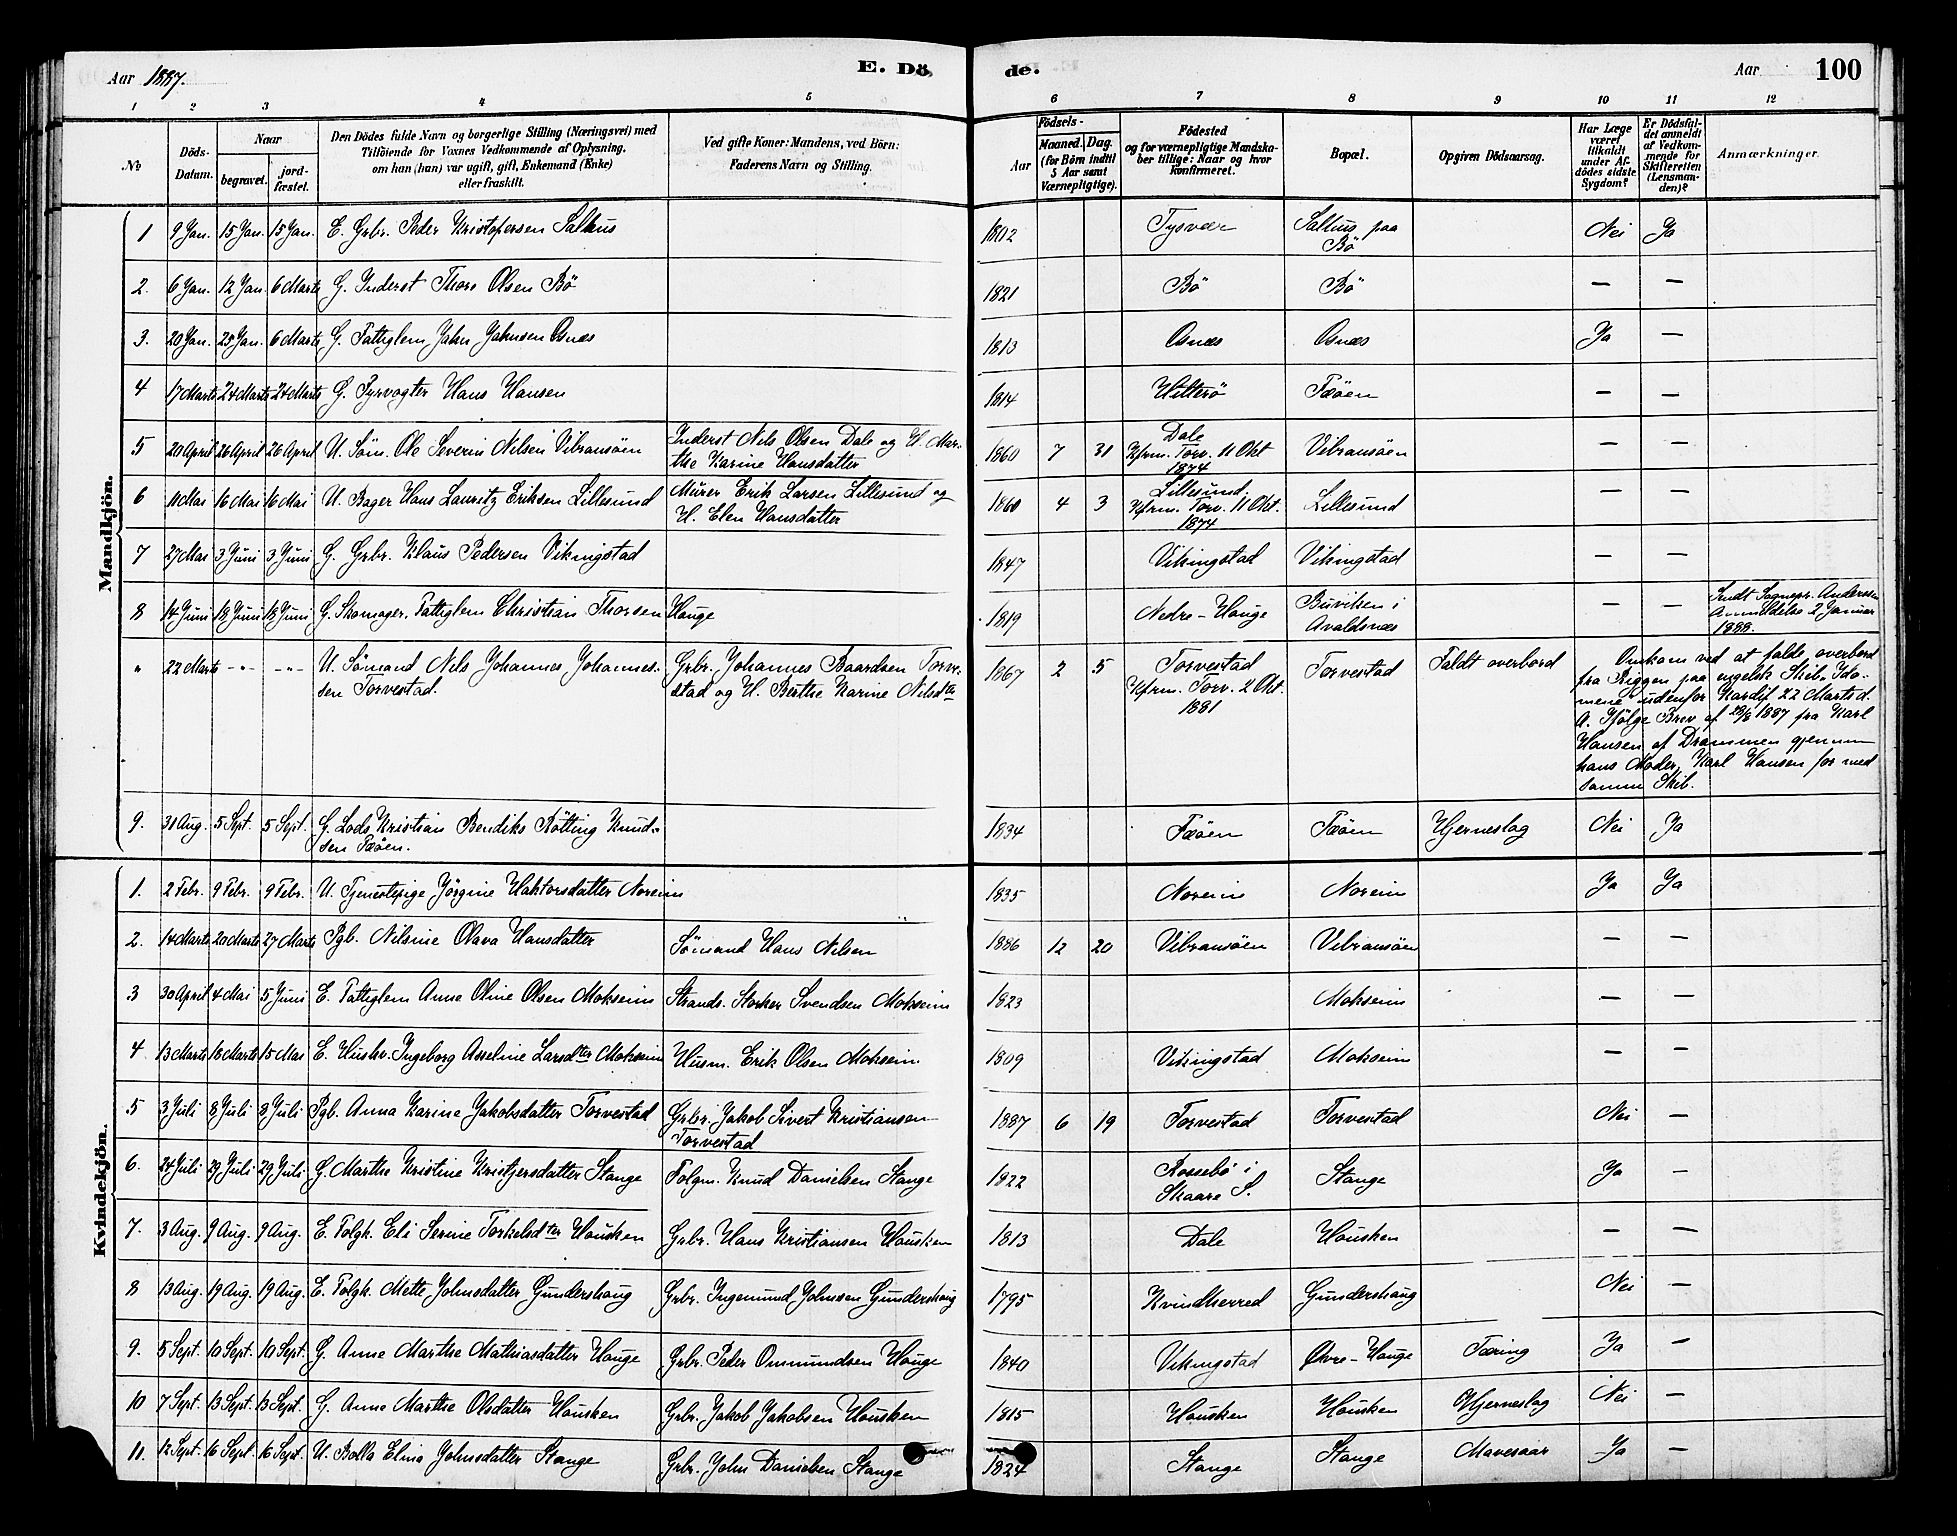 Aar 1887.
E. Dö
de.
Aar
100
1 2 3 4 5 6 7 8 9 10 11 12
No
Döds-Datum.
Naar
begravet.
jord-fæstet.
Den Dödes fulde Navn og borgerlige Stilling (Næringsvei) med
Tilföiende for Voxnes Vedkommende af Oplysning,
om han (hun) var ugift, gift, Enkemand (Enke)
eller fraskilt.
Ved gifte Koner: Mandens, ved Börn:
Faderens Navn og Stilling.
Födsels-
Aar
Maaned. Dag.
(for Börn indtil
5 Aar samt
Værnepligtige).
Födested
og for værnepligtige Mandska-
ber tillige: Naar og hvor
konfirmeret.
Bopæl.
Opgiven Dödsaarsag.
Har Læge
været
tilkaldt
under Af-
dödes sidste
Sygdom?
Er Dödsfal-
det anmeldt
af Vedkom-
mende for
Skifteretten
(Lensman-
den)?
Anmærkninger.
Mandkjön.
1 9 Jan. 15 Jan. 15 Jan. E. Grbr. Peder Kristofersen Salhus 1802 Tysvær Salhus paa Bö Nei Ja
2. 6 Jan. 12 Jan. 6 Marts G. Inderst Thore Olsen Bö 1821 Bö Bö — —
3. 20 Jan. 25 Jan. 6 Marts G. Fattiglem John Johnsen Osnæs 1813 Osnæs Osnæs Ja —
4 17 Marts 24 Marts 24 Marts G. Fyrvogter Hans Hansen 1814 Hitterö Fæöen — —
5 20 April 26 April 26 April U. Söm. Ole Severin Nilsen Vibransöen Inderst Nils Olsen Dale og H. Mar-
the Karine Hansdatter 1860 7 31 Dale
Kfrm. Torv. 11 Okt
1874 Vibransöen — —
6 11 Mai 16 Mai 16 Mai U. Bager Hans Lauritz Eriksen Lillesund Murer Erik Larsen Lillesund og
H. Elen Hansdatter 1860 4 3 Lillesund,
Kfrm. Torv. 11 Okt.
1874 Lillesund — —
7 27 Mai 3 Juni 3 Juni G. Grbr. Klaus Pedersen Vikingstad 1847 Vikingstad Vikingstad — —
8 14 Juni 18 Juni 18 Juni G. Skomager, Fattiglem Christian Thorsen Hauge 1819 Nedre-Hauge Buviken i
Avaldsnæs — — Sendt Sognepr. Anderssen
Anmeldelse 2 Januar
1888.
" 22 Marts -"- -"- U. Sömand Nils Johannes Johannes-
sen Torvestad. Grbr. Johannes Baardsen Torve-
stad og H. Berthe Karine Nilsdter 1867 2 5 Torvestad
Kfrm. Torv. 2 Okt.
1881 Torvestad Faldt overbord Omkom ved at falde overbord
fra Riggen paa engelsk Skib, Ido-
mene udenfor Kardif 22 Marts d.
A. Ifölge Brev af 28/8 1887 fra Karl
Hansen af Drammen gjennem
hans Moder, Karl Hansen for med
samme Skib.
9. 31 Aug. 5 Sept. 5 Sept. G. Lods Kristian Bendiks Rötting Knud-
sen Fæöen. 1834 Fæöen Fæöen Hjerneslag Nei Ja
Kvindekjön.
1. 2 Febr. 9 Febr. 9 Febr. U. Tjenestepige Jörgine Haktorsdatter Noreim 1835 Noreim Noreim Ja Ja
2. 14 Marts 20 Marts 27 Marts Pgb. Nilsine Olava Hansdatter Sömand Hans Nilsen 1886 12 20 Vibransöen Vibransöen — —
3 30 April 4 Mai 5 Juni E. Fattiglem Anne Oline Olsen Mokseim Strands. Storker Svendsen Mokseim 1823 Mokseim — —
4 13 Marts 18 Marts 15 Mai E. Huskr. Ingeborg Asseline Larsdter Mokseim Husm. Erik Olsen Mokseim 1809 Vikingstad Mokseim — —
5 3 Juli 8 Juli 8 Juli Pgb. Anna Karine Jakobsdatter Torvestad Grbr. Jakob Sivert Kristiansen
Torvestad 1887 6 19 Torvestad Torvestad Nei —
6. 24 Juli 29 Juli 29 Juli G. Marthe Kristine Kristjersdatter Stange Folgm. Knud Danielsen Stange 1822 Rossebö i
Skaare S. Stange Ja —
7. 3 Aug. 9 Aug. 9 Aug. E. Folgk. Eli Serine Torkelsdter Housken Grbr. Hans Kristiansen Housken 1813 Dale Housken — —
8 13 Aug. 19 Aug. 19 Aug. E. Folgk. Mette Johnsdatter Gundershaug Grbr. Ingemund Johnsen Gundershaug 1795 Kvindherred Gundershaug Nei —
9. 5 Sept. 10 Sept. 10 Sept. G. Anne Marthe Mathiasdatter Hauge Grbr. Peder Ommundsen Hauge 1840 Vikingstad Övre-Hauge Tæring Ja —
10 7 Sept. 13 Sept. 13 Sept. G. Anne Marthe Olsdatter Housken Grbr. Jakob Jakobsen Housken 1815 Housken Housken Hjerneslag Nei —
11. 12 Sept. 16 Sept. 16 Sept. U. Bolla Elina Johnsdatter Stange Grbr. John Danielsen Stange 1824 Stange Stange Mavesaar Ja —